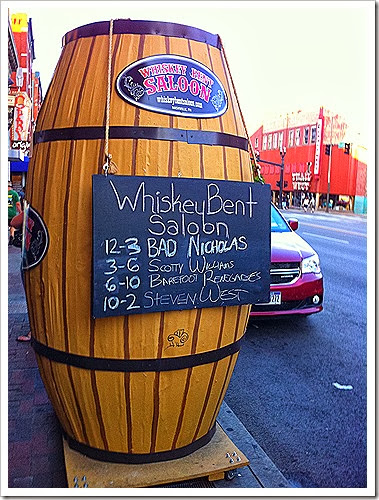 WHISKEY BENT
SALOON
whiskeybentsaloon.com
NASHVILLE, TN
WhiskeyBent
Saloon
12-3 BAD NICHOLAS
3-6 SCOTTY WILLIAMS
6-10 BAREFOOT RENEGADES
10-2 STEVEN WEST
TRAIL
WEST